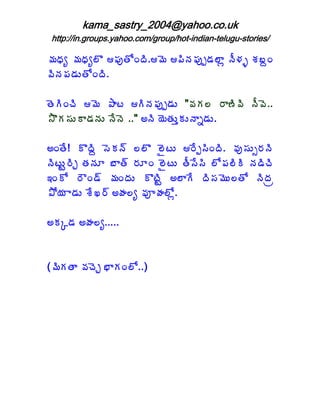 kama_sastry_2004@yahoo.co.uk
http://in.groups.yahoo.com/group/hot-indian-telugu-stories/
మధ్య మధ్యలొ ఆపుతోంది.ఆమె ఆపినపుడ్డల్లా నీళ్ళ శబ్దం
వినపడుతోంది.
తెగించి ఆమె పాట ఆగినపుడ్డు "వగల రాణివి నీవె..
సొగసుకాడను నేనె .." అని యెత్తుకున్నాడు.
అంతే! కొద్ది సెకన్ లలొ లైటు ఆర్పేసింది. వుసుర్సురని
నిట్టుర్చి తనూ బాత్ రూం లైటు తీసేసి లోపలికి నడిచి
ఇంకో రౌండ్ మందు కొట్టి అలాగే దిసమొలతో నిద్ర
పోయాడు శేఖర్ అహల్య వూహల్లో.
అక్కడ అహల్య.....
(మిగతా వచ్చె భాగంలో..)